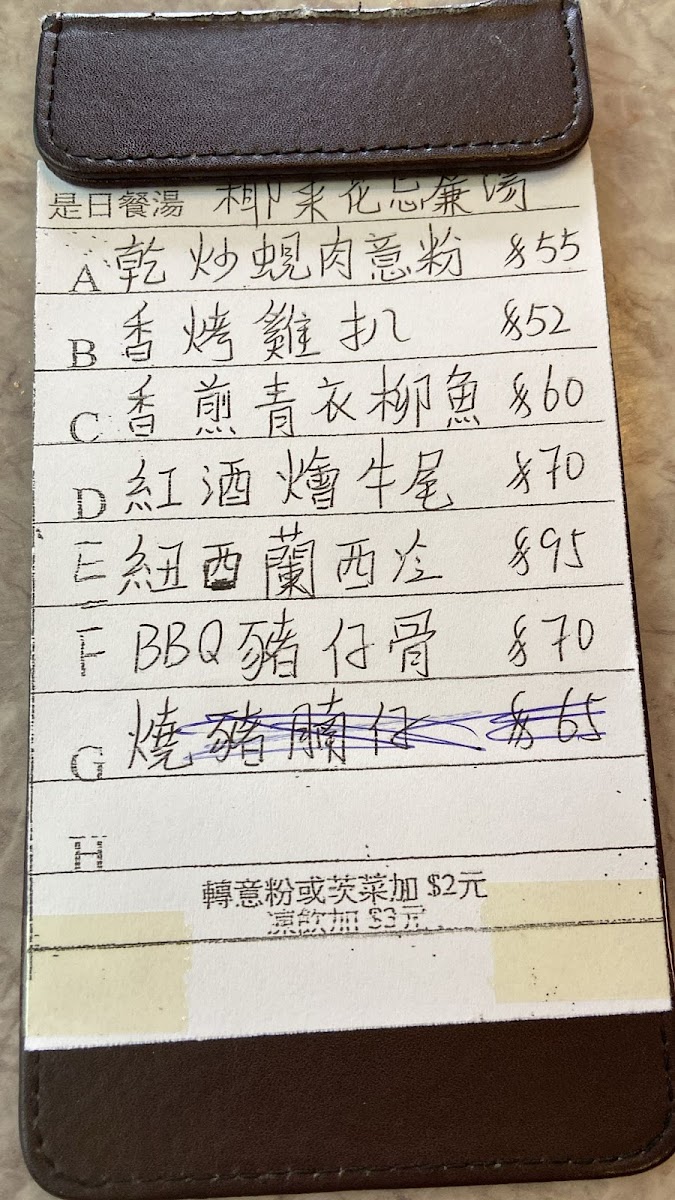 是日餐湯 椰菜花忌廉湯
A 乾炒蜆肉意粉 $55
B 香烤雞扒 $52
C 香煎青衣柳魚 $60
D 紅酒燴牛尾 $70
E 紐西蘭西冷 $95
F BBQ豬仔骨 $70
G 燒豬腩仔 $65
H
轉意粉或茨菜加 $2元
凍飲加 $3元